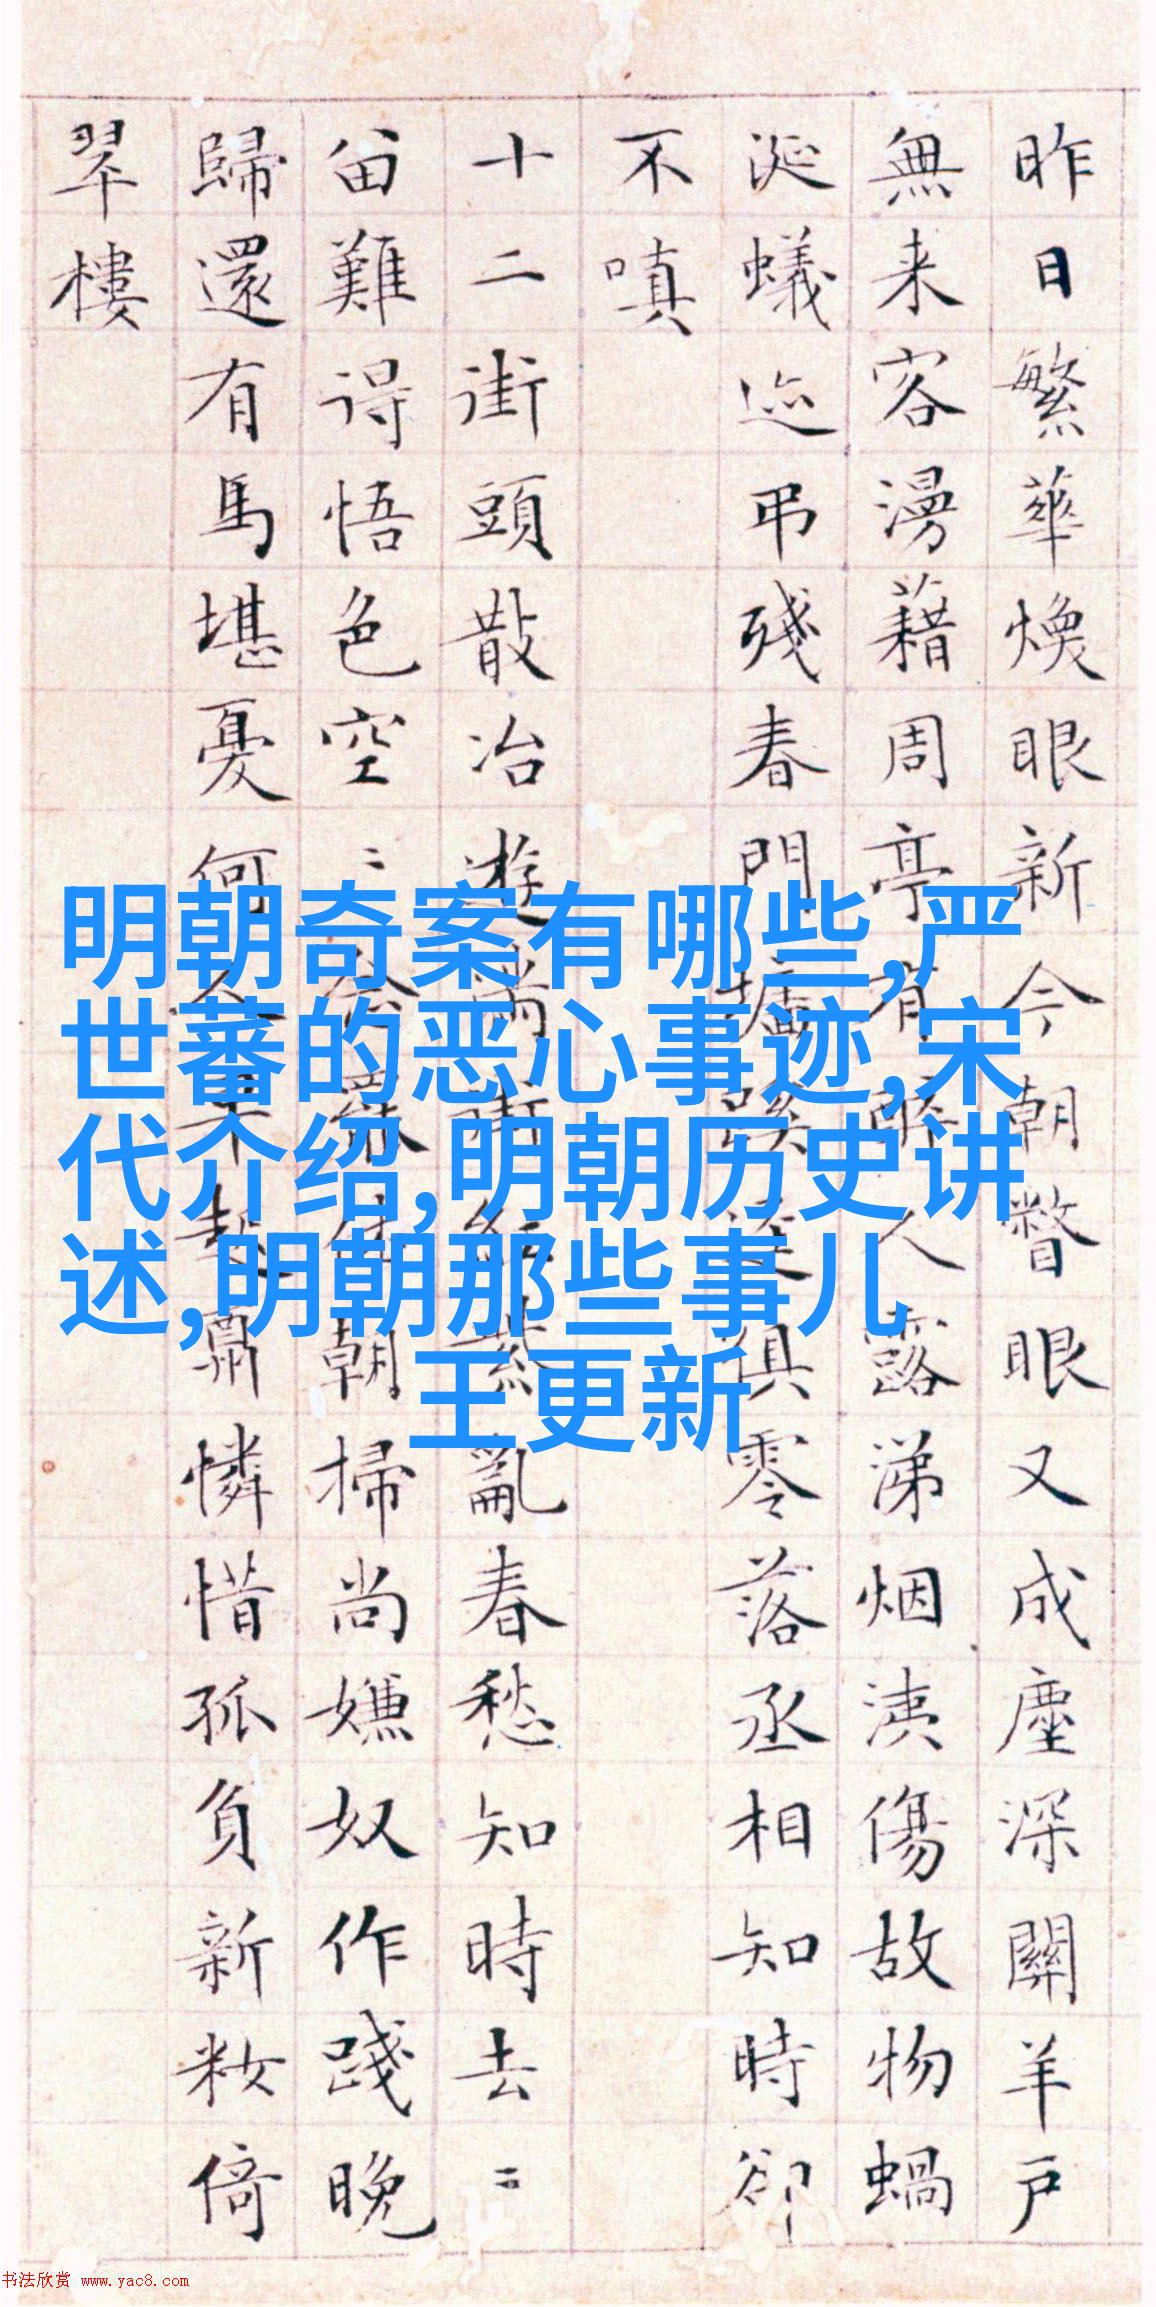 昨日繁華煥眼新今朝瞥眼又成塵深關羊戶
無来客漫藉周亭有醉人露涕烟洟傷故物蝸
涎蟻迹弔殘春門墻蹊逕俱零落丞相知時卻
不嗔
十二街頭散冶遊滿街紅紫亂春愁知時去二
留難得悟色空二念罷休朝掃尚嫌奴作踐晚
歸還有馬堪憂何人早起肯憐惜孤負新籹倚
翠樓
明朝奇案有哪些,严
世蕃的恶心事迹,宋
代介绍,明朝历史讲
述,明朝那些事儿
王更新
书法欣赏 www.yac8.com